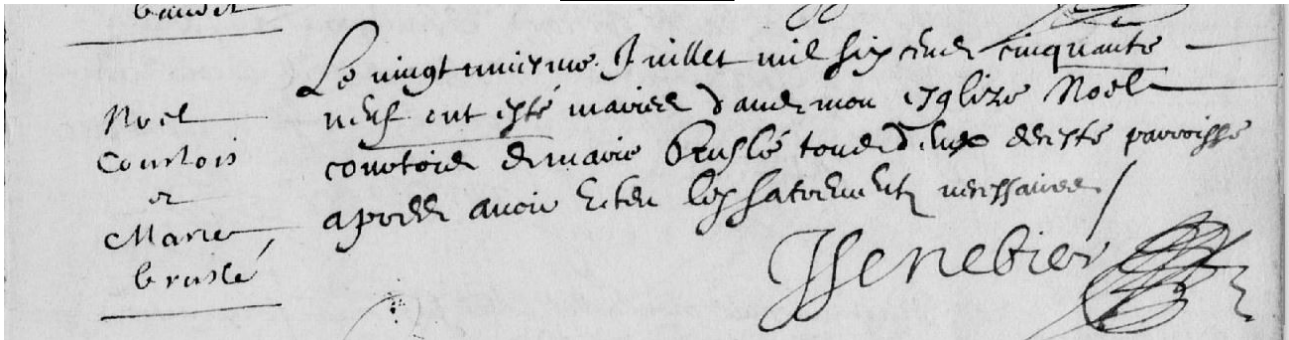 baudet
Noel
Courtois
et
Marie
bruslé
Le vingt uniesme Juillet mil six cents cinquante
neuf ont esté mariés dans mon esglize Noel
courtois et marie Bruslé tous deux de ceste parroisse
apres avoir receu les sacrements necessaires
JSenebier